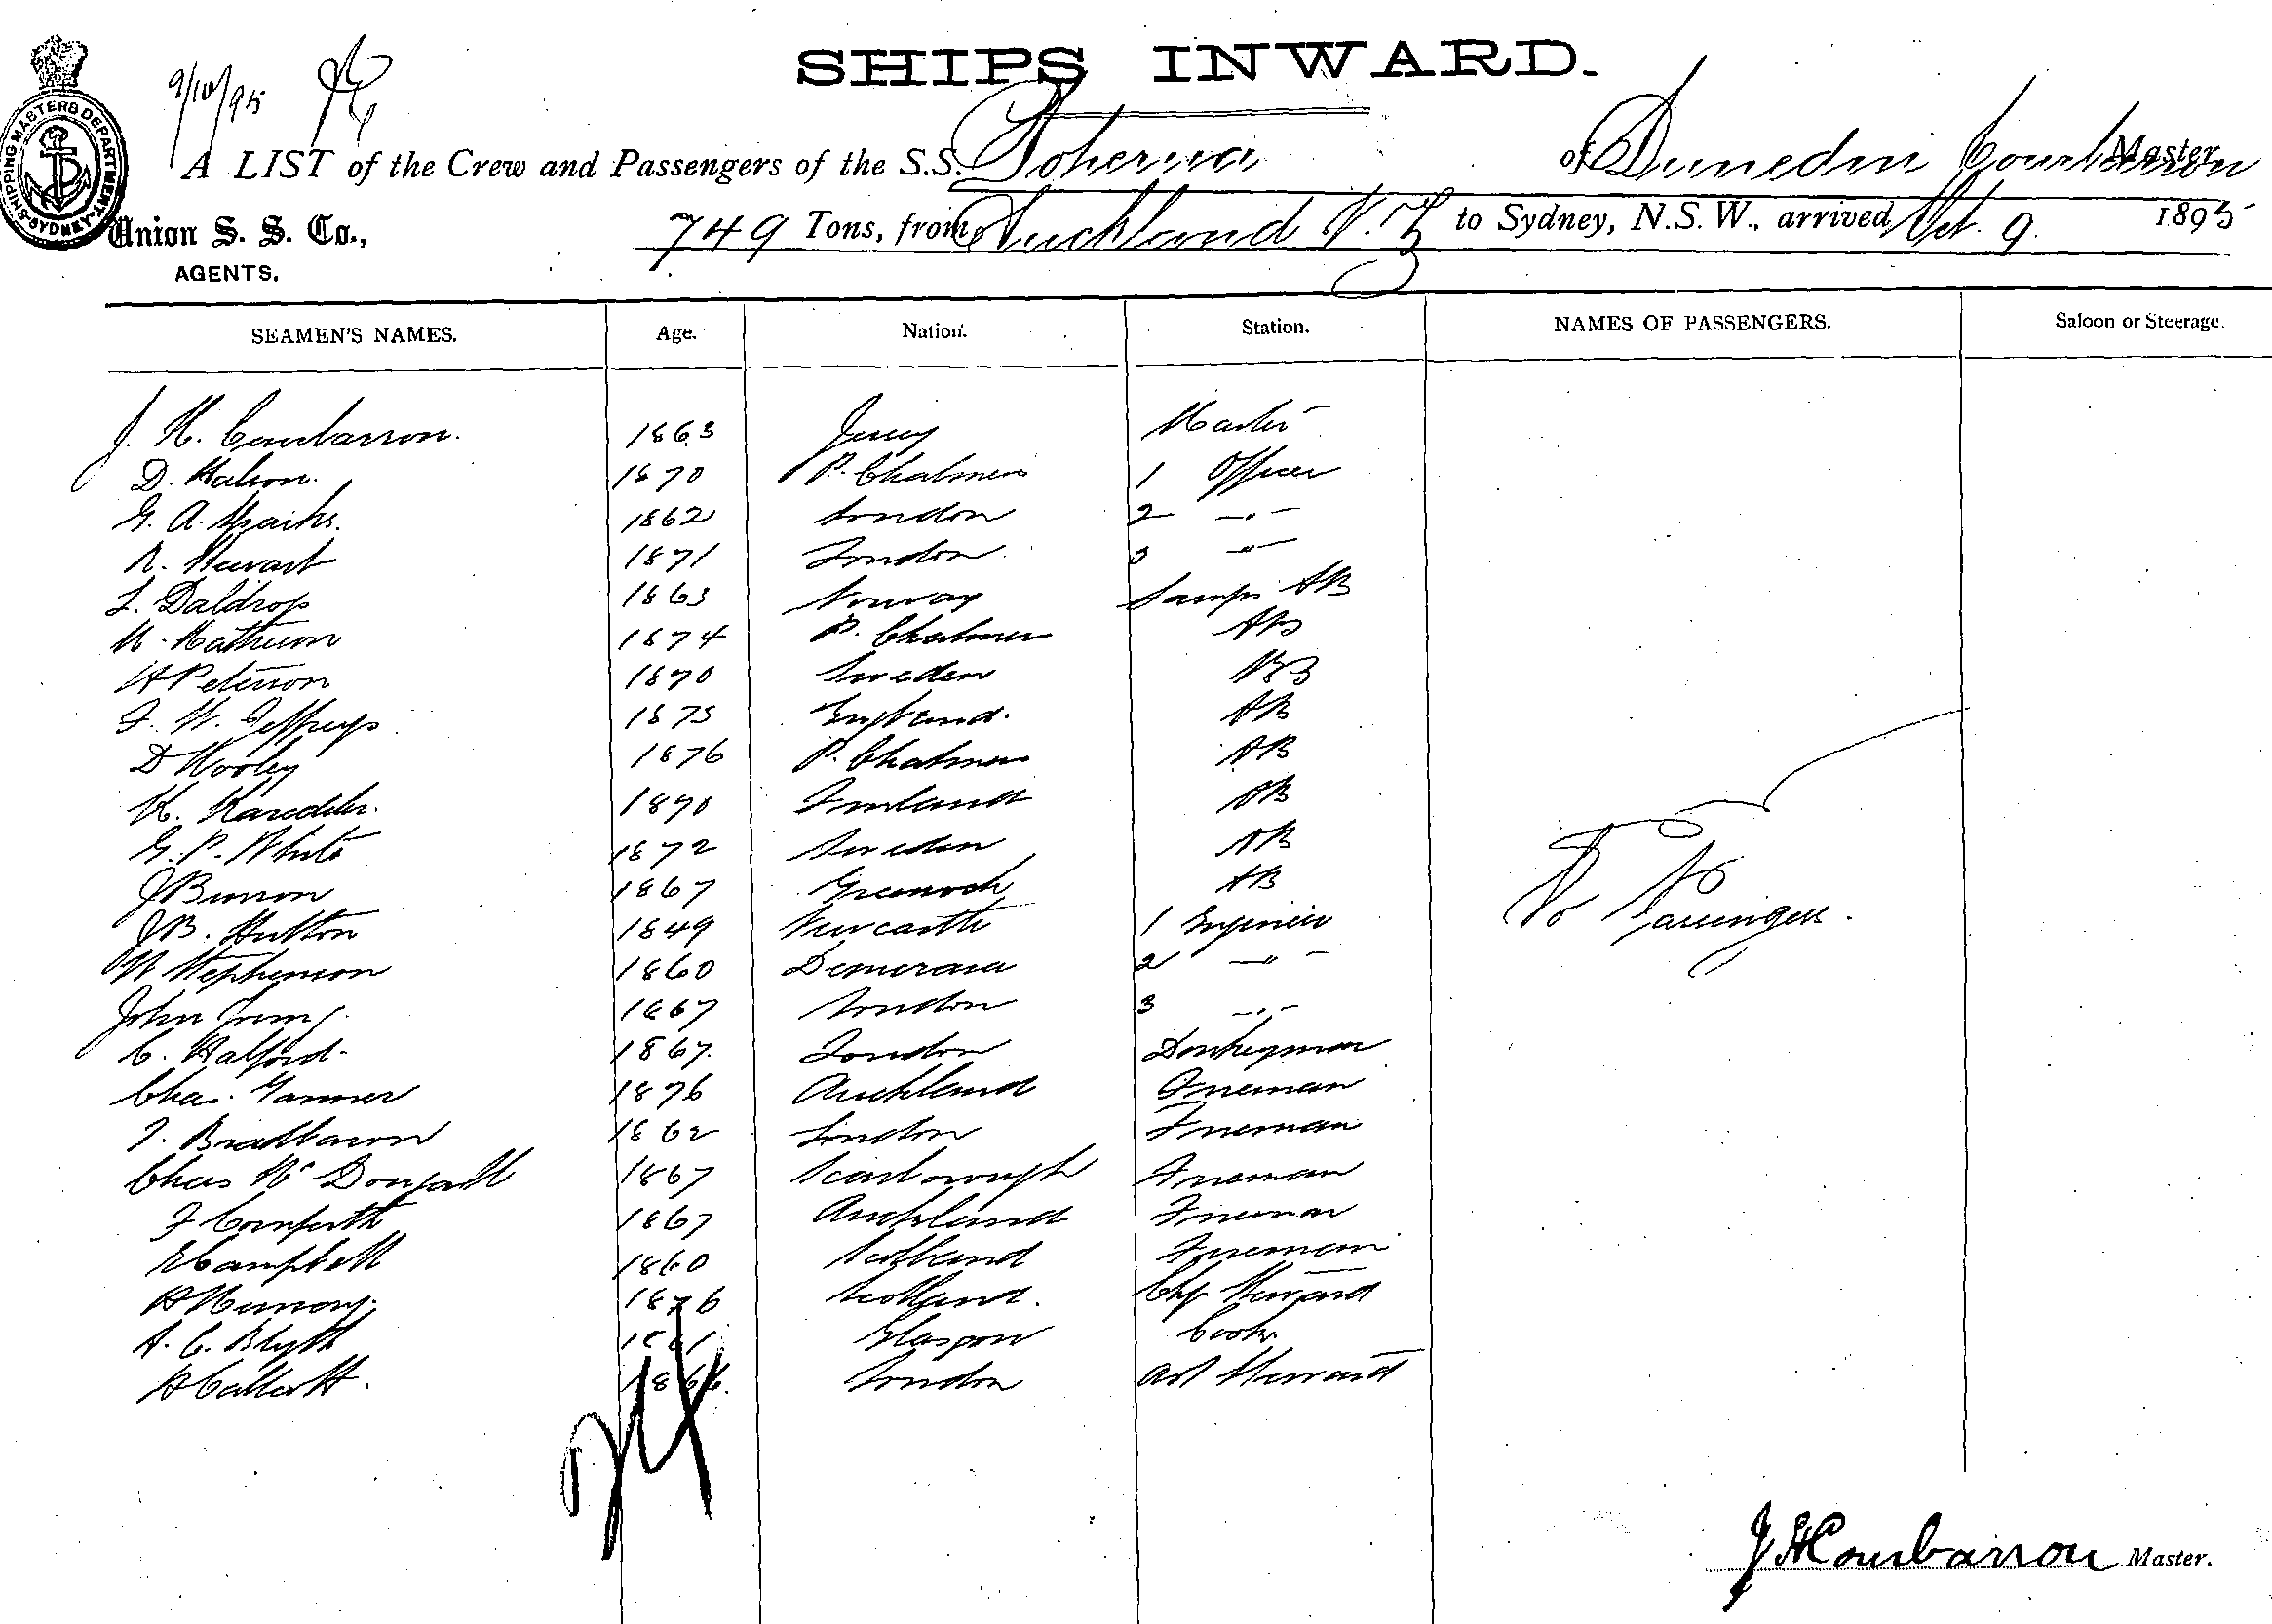 SHIPS INWARD.
9/10/95
A LIST of the Crew and Passengers of the S.S. Poherua of Dunedin Courbarron Master
Union S. S. Co., 749 Tons, from Auckland N.Z to Sydney, N.S.W., arrived Oct. 9. 1895
AGENTS.
SHIPPING MASTERS DEPARTMENT SYDNEY
SEAMEN'S NAMES. Age. Nation. Station. NAMES OF PASSENGERS. Saloon or Steerage.
J. H. Courbarron. 1863 Jersey Master
D. 1870 P. Chalmers 1 Officer
G. A. 1862 London 2 —„—
R. Stewart 1871 London 3 —„—
L. Daldrop 1863 Norway Lamps AB
M. Mathieson 1874 P. Chalmers AB
H Peterson 1870 Sweden AB
F. W. Jeffreys 1875 England. AB
D Wooley 1876 P. Chalmers AB
K. 1870 Finland AB
G. P. White 1872 Sweden AB
J 1867 Greenock AB
No Passengers.
J B. Hutton 1849 Newcastle 1 Engineer
W Stephenson 1860 Demerara 2 —„—
John 1867 London 3 —„—
C. Halford. 1867. London Donkeyman
Chas. 1876 Auckland Fireman
T. 1862 London Fireman
Chas Mc Dougall 1867 Scarborough Fireman
F Cornforth 1867 Auckland Fireman
E Campbell 1860 Scotland Fireman
1876 Scotland. Chf Steward
A. C. Blyth 1861 Glasgow Cook
H 1866. London Ast Steward
J H Courbarron Master.